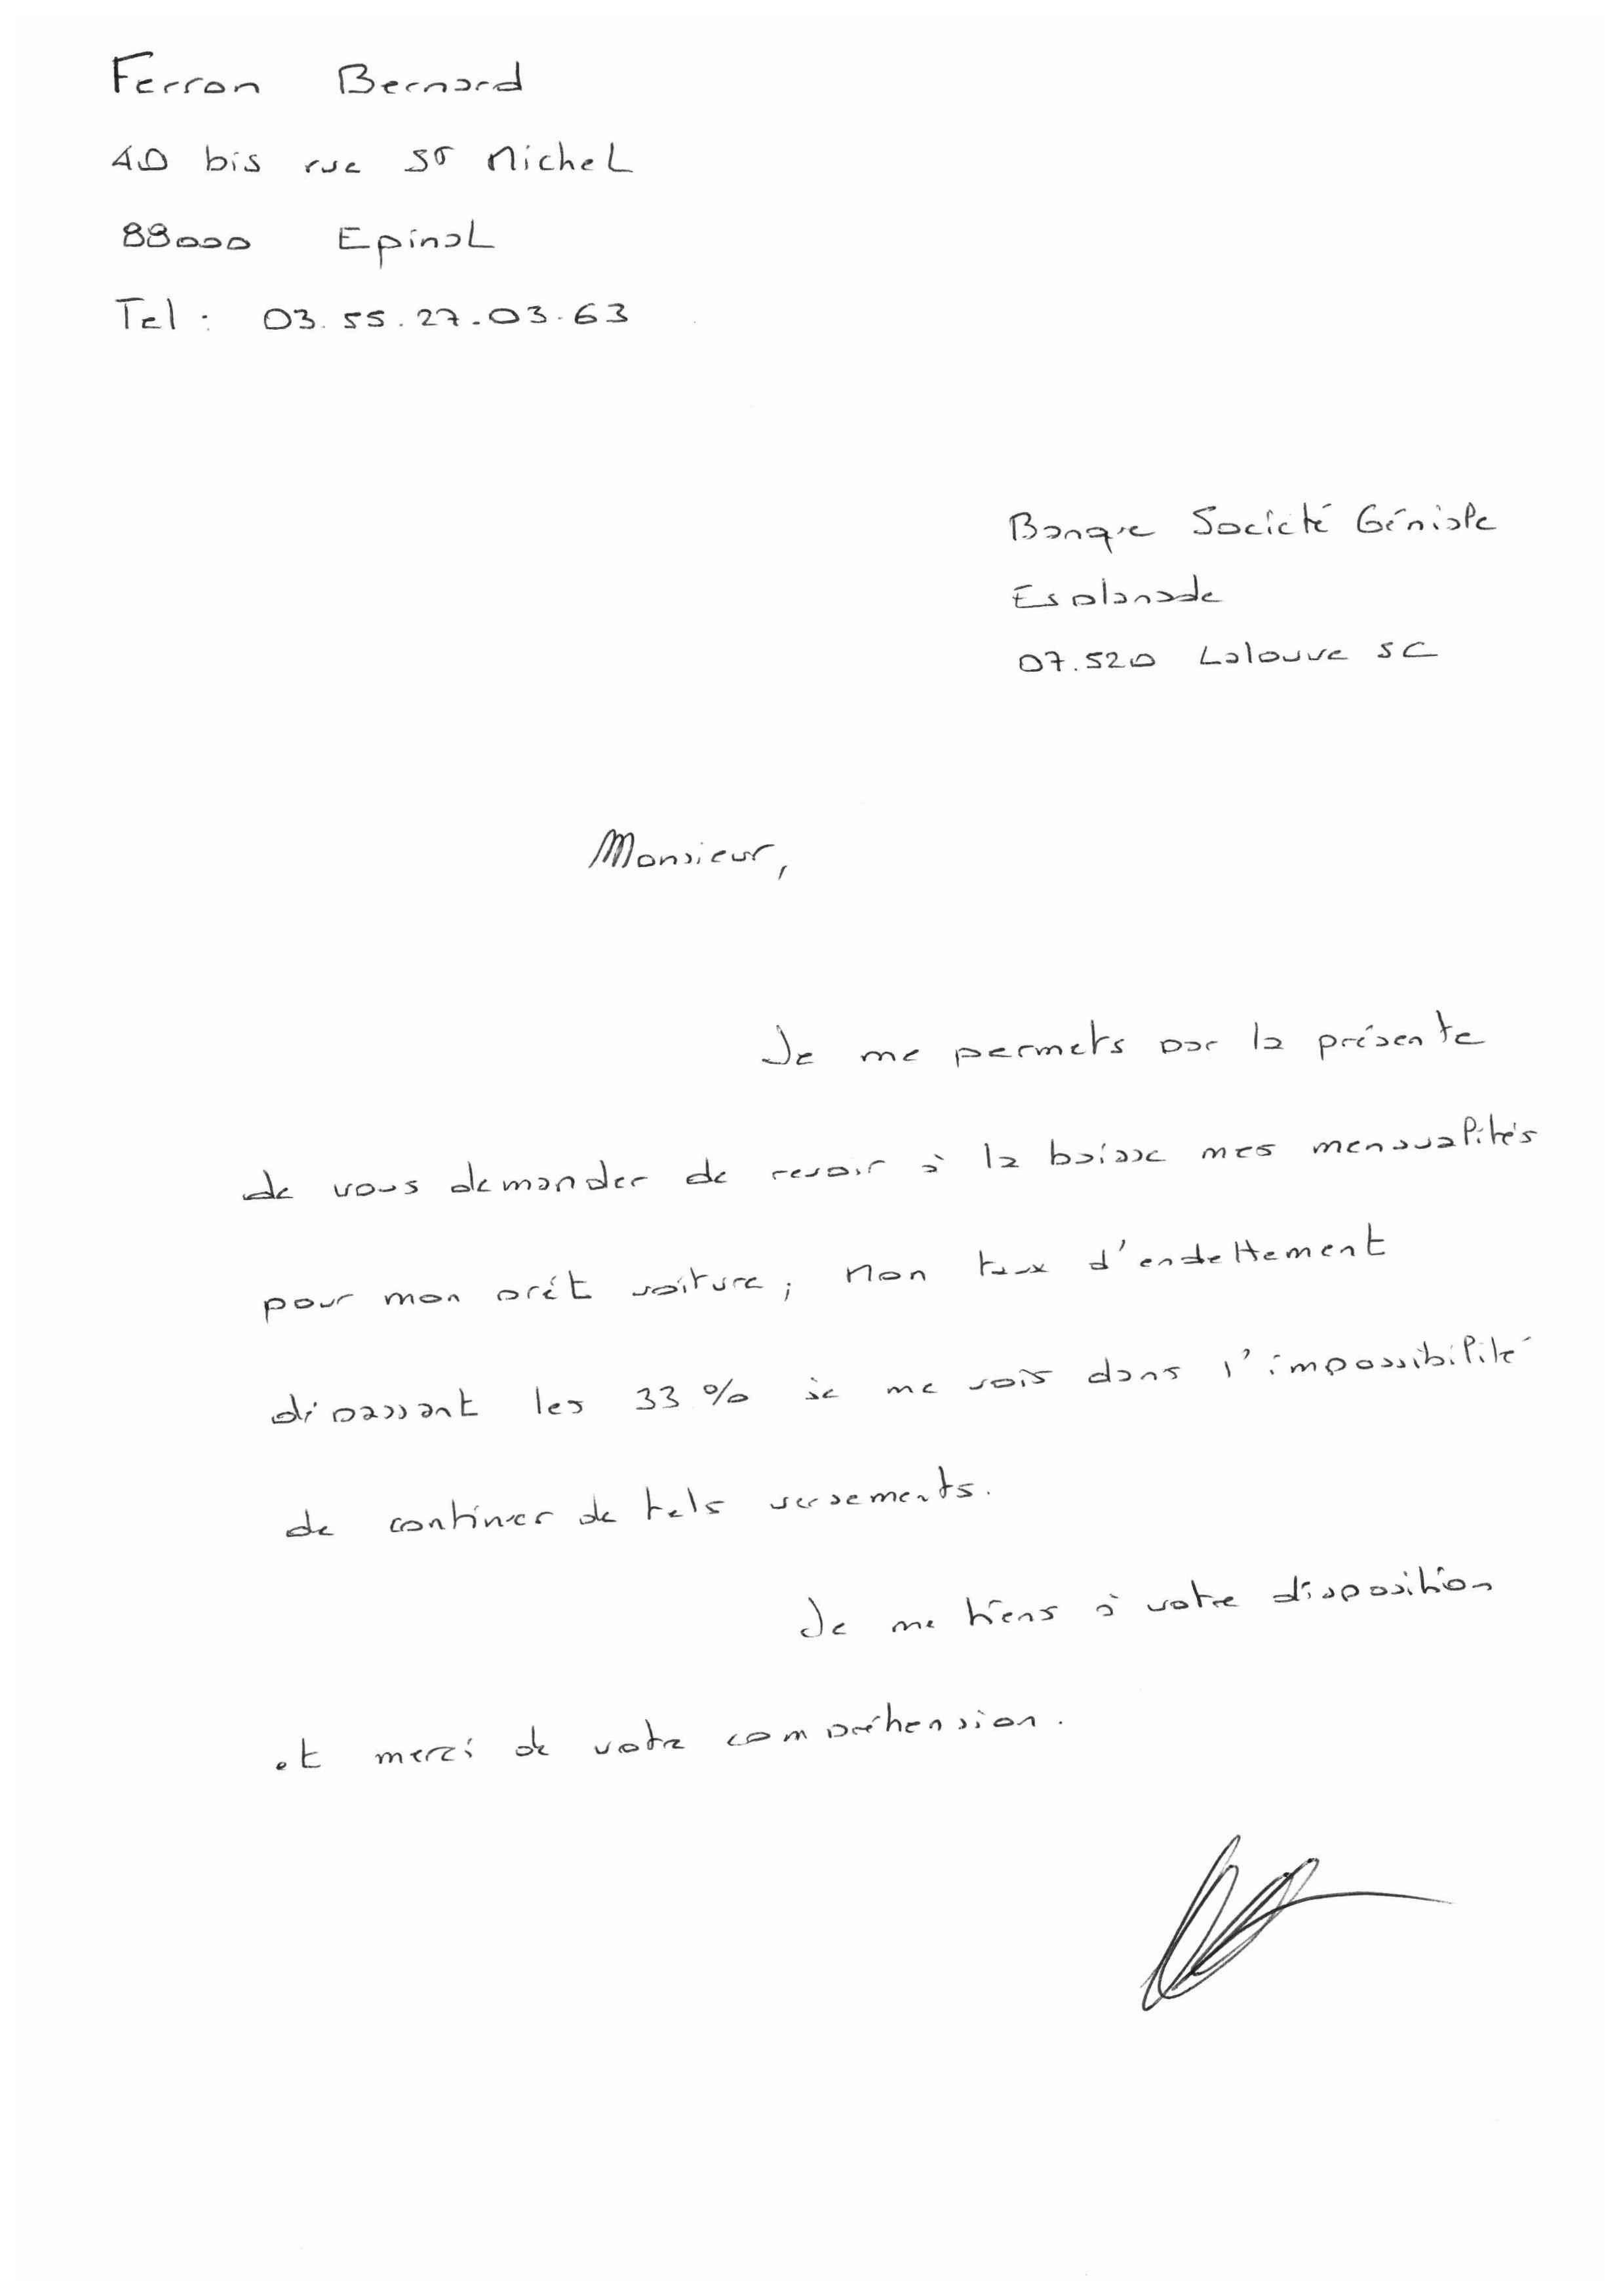 Ferron Bernard
40 bis rue St Michel
88000 Epinal
Tel : 03.55.27.03.63
Banque Société Géniale
Esplanade
07.520 Lalouvesc
Monsieur,
Je me permets par la présente
de vous demander de revoir à la baisse mes mensualités
pour mon prêt voiture ; Mon taux d'endettement
dépassant les 33 % je me vois dans l'impossibilité
de continuer de tels versements.
Je me tiens à votre disposition
et merci de votre compréhension.